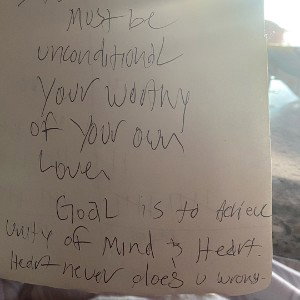 Must be
unconditional
Your worthy
of Your own
Love
Goal is to Achieve
Unity of Mind & Heart.
Heart never does u wrong.